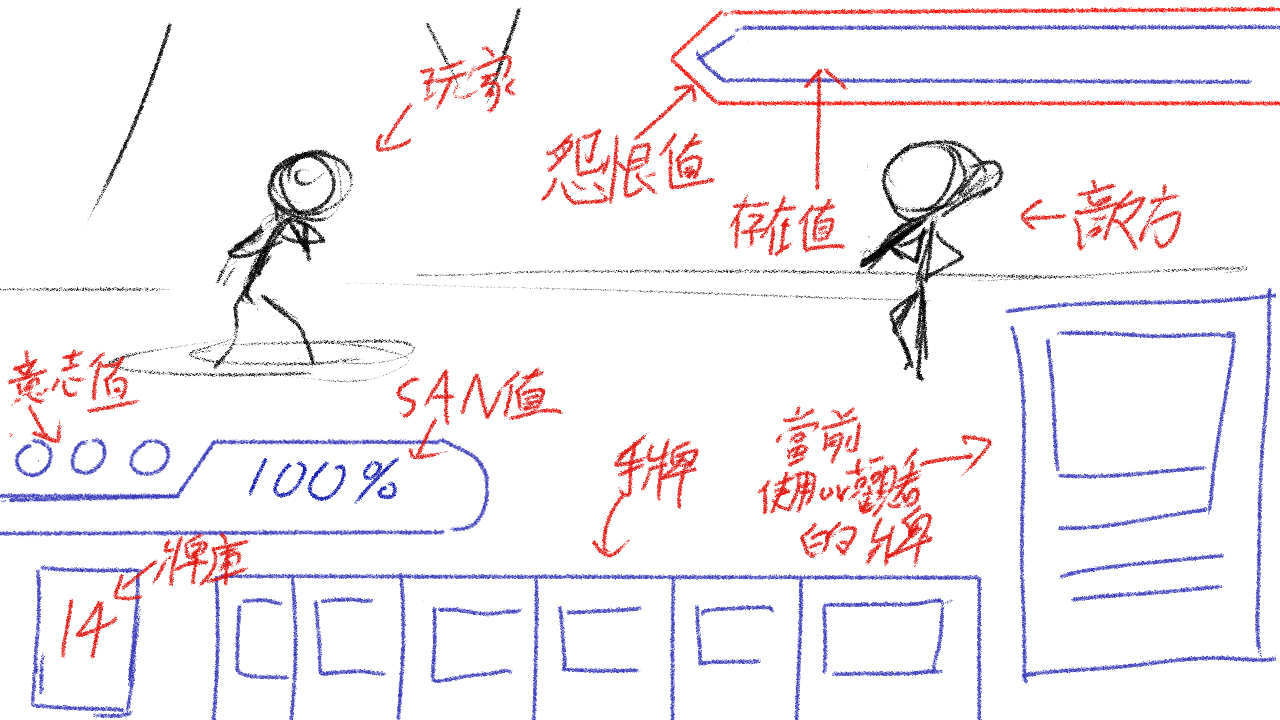 玩家
怨恨值
存在值
敵方
意志值
SAN值
100%
手牌
當前
使用or觀看
的牌
牌庫
14